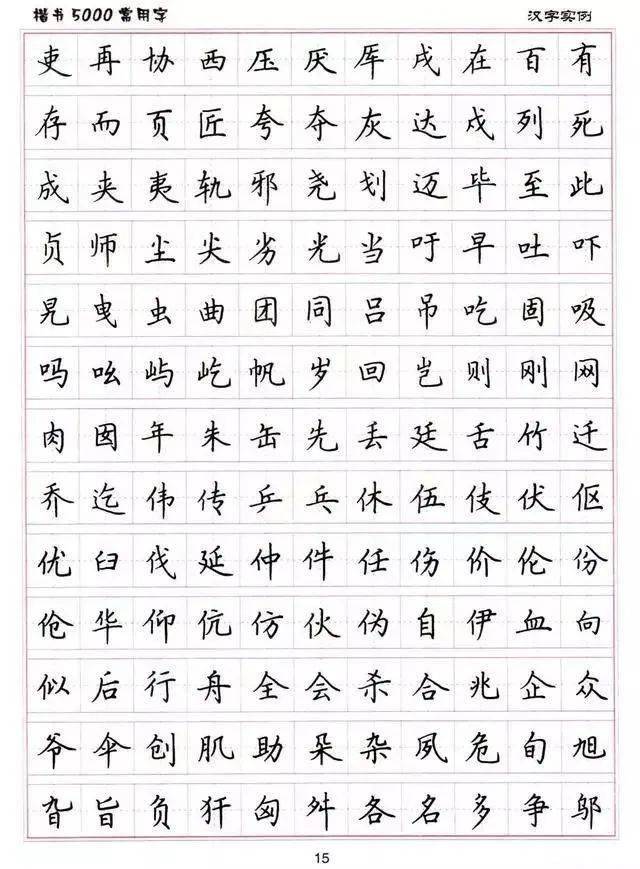 楷书5000常用字 汉字实例
吏再协西压厌厍戌在百有
存而页匠夸夺灰达戍列死
成夹夷轨邪尧划迈毕至此
贞师尘尖劣光当吁早吐吓
旯曳虫曲团同吕吊吃固吸
吗吆屿屹帆岁回岂则刚网
肉囡年朱缶先丢廷舌竹迁
乔迄伟传乒乓休伍伎伏伛
优臼伐延仲件任伤价伦份
伧华仰伉仿伙伪自伊血向
似后行舟全会杀合兆企众
爷伞创肌肋朵杂夙危旬旭
旮旨负犴匈舛各名多争邬
15